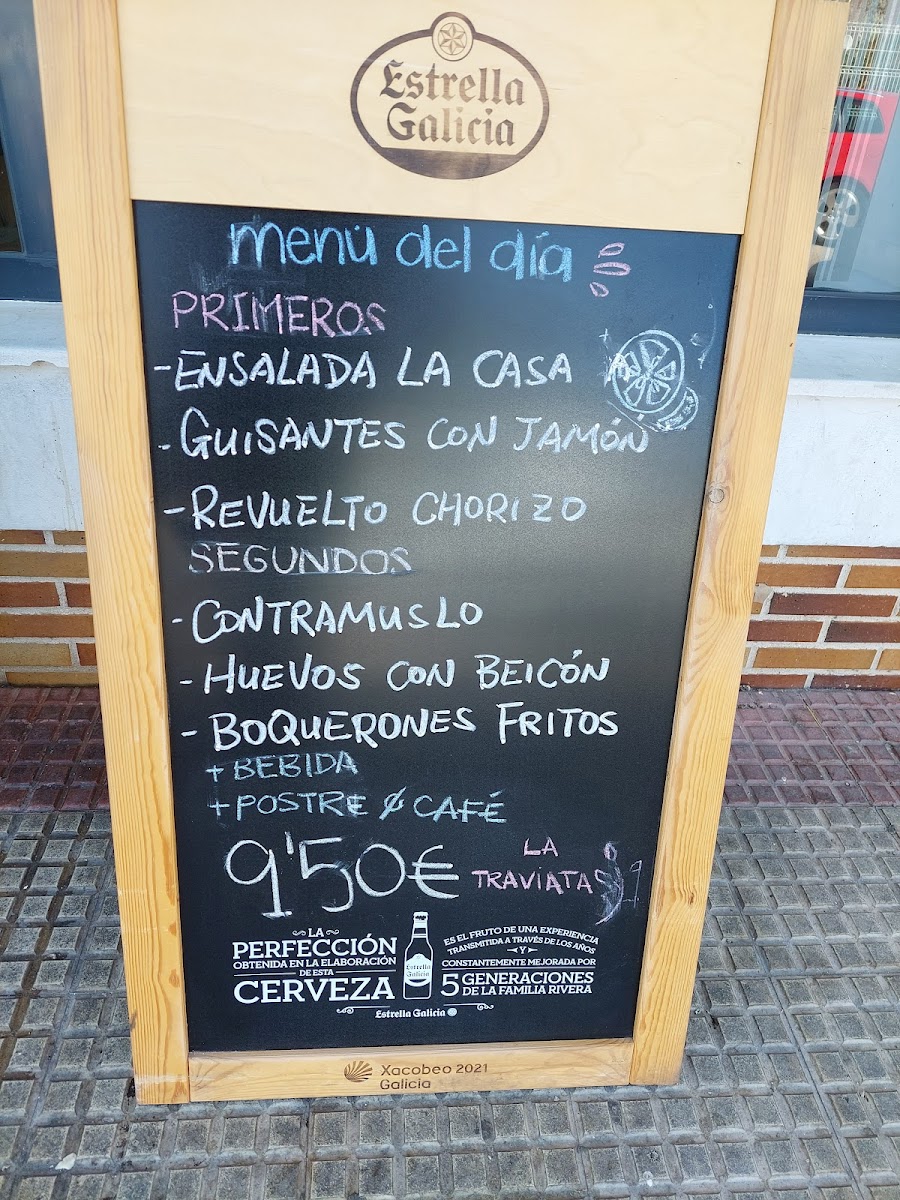 Estrella
Galicia
menú del día
PRIMEROS
-ENSALADA LA CASA
-GUISANTES CON JAMÓN
-REVUELTO CHORIZO
SEGUNDOS
-CONTRAMUSLO
-HUEVOS CON BEICÓN
-BOQUERONES FRITOS
+BEBIDA
+POSTRE Ó CAFÉ
9'50€
LA
TRAVIATA
LA
PERFECCIÓN
OBTENIDA EN LA ELABORACIÓN
DE ESTA
CERVEZA
Estrella
Galicia
ES EL FRUTO DE UNA EXPERIENCIA
TRANSMITIDA A TRAVÉS DE LOS AÑOS
Y
CONSTANTEMENTE MEJORADA POR
5 GENERACIONES
DE LA FAMILIA RIVERA
Estrella Galicia
Xacobeo 2021
Galicia